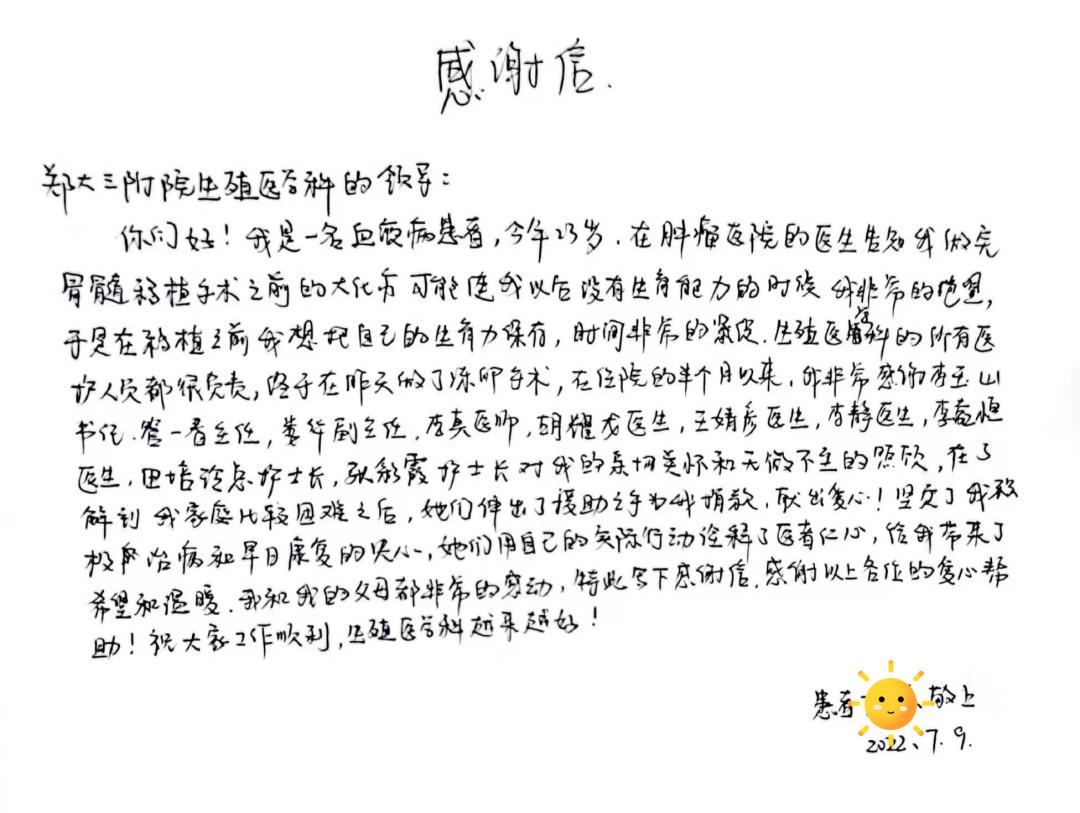 感谢信.
郑大三附院生殖医学科的领导:
你们好!我是一名血液病患者,今年23岁.在肿瘤医院的医生告知我做完
骨髓移植手术之前的大化疗可能使我以后没有生育能力的时候 我非常的绝望,
于是在移植之前我想把自己的生育力保存,时间非常的紧迫.生殖医学科的所有医
护人员都很负责,终于在昨天做了冻卵手术,在住院的半个月以来,我非常感谢李玉山
书记.管一春主任,娄华副主任.李真医师,胡耀龙医生,王婧彦医生,李静医生,李
医生.田培玲总护士长,张彩霞护士长对我的亲切关怀和无微不至的照顾,在了
解到我家庭比较困难之后,她们伸出了援助之手为我捐款.献出爱心!坚定了我积
极治病和早日康复的决心,她们用自己的实际行动诠释了医者仁心,给我带来了
希望和温暖.我和我的父母都非常的感动,特此写下感谢信.感谢以上各位的爱心帮
助!祝大家工作顺利,生殖医学科越来越好!
患者 敬上
2022、7.9.